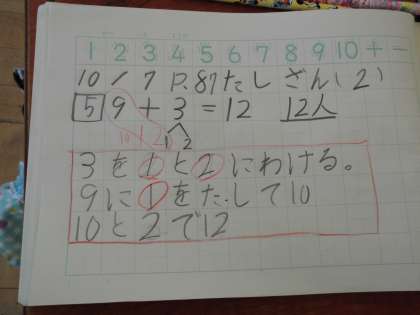 1 2 3 4 5 6 7 8 9 10 + -
10/7 P.87 たしざん(2)
5 9+3=12 12人
10 2
1 2
3を1と2にわける。
9に1をたして10
10と2で12